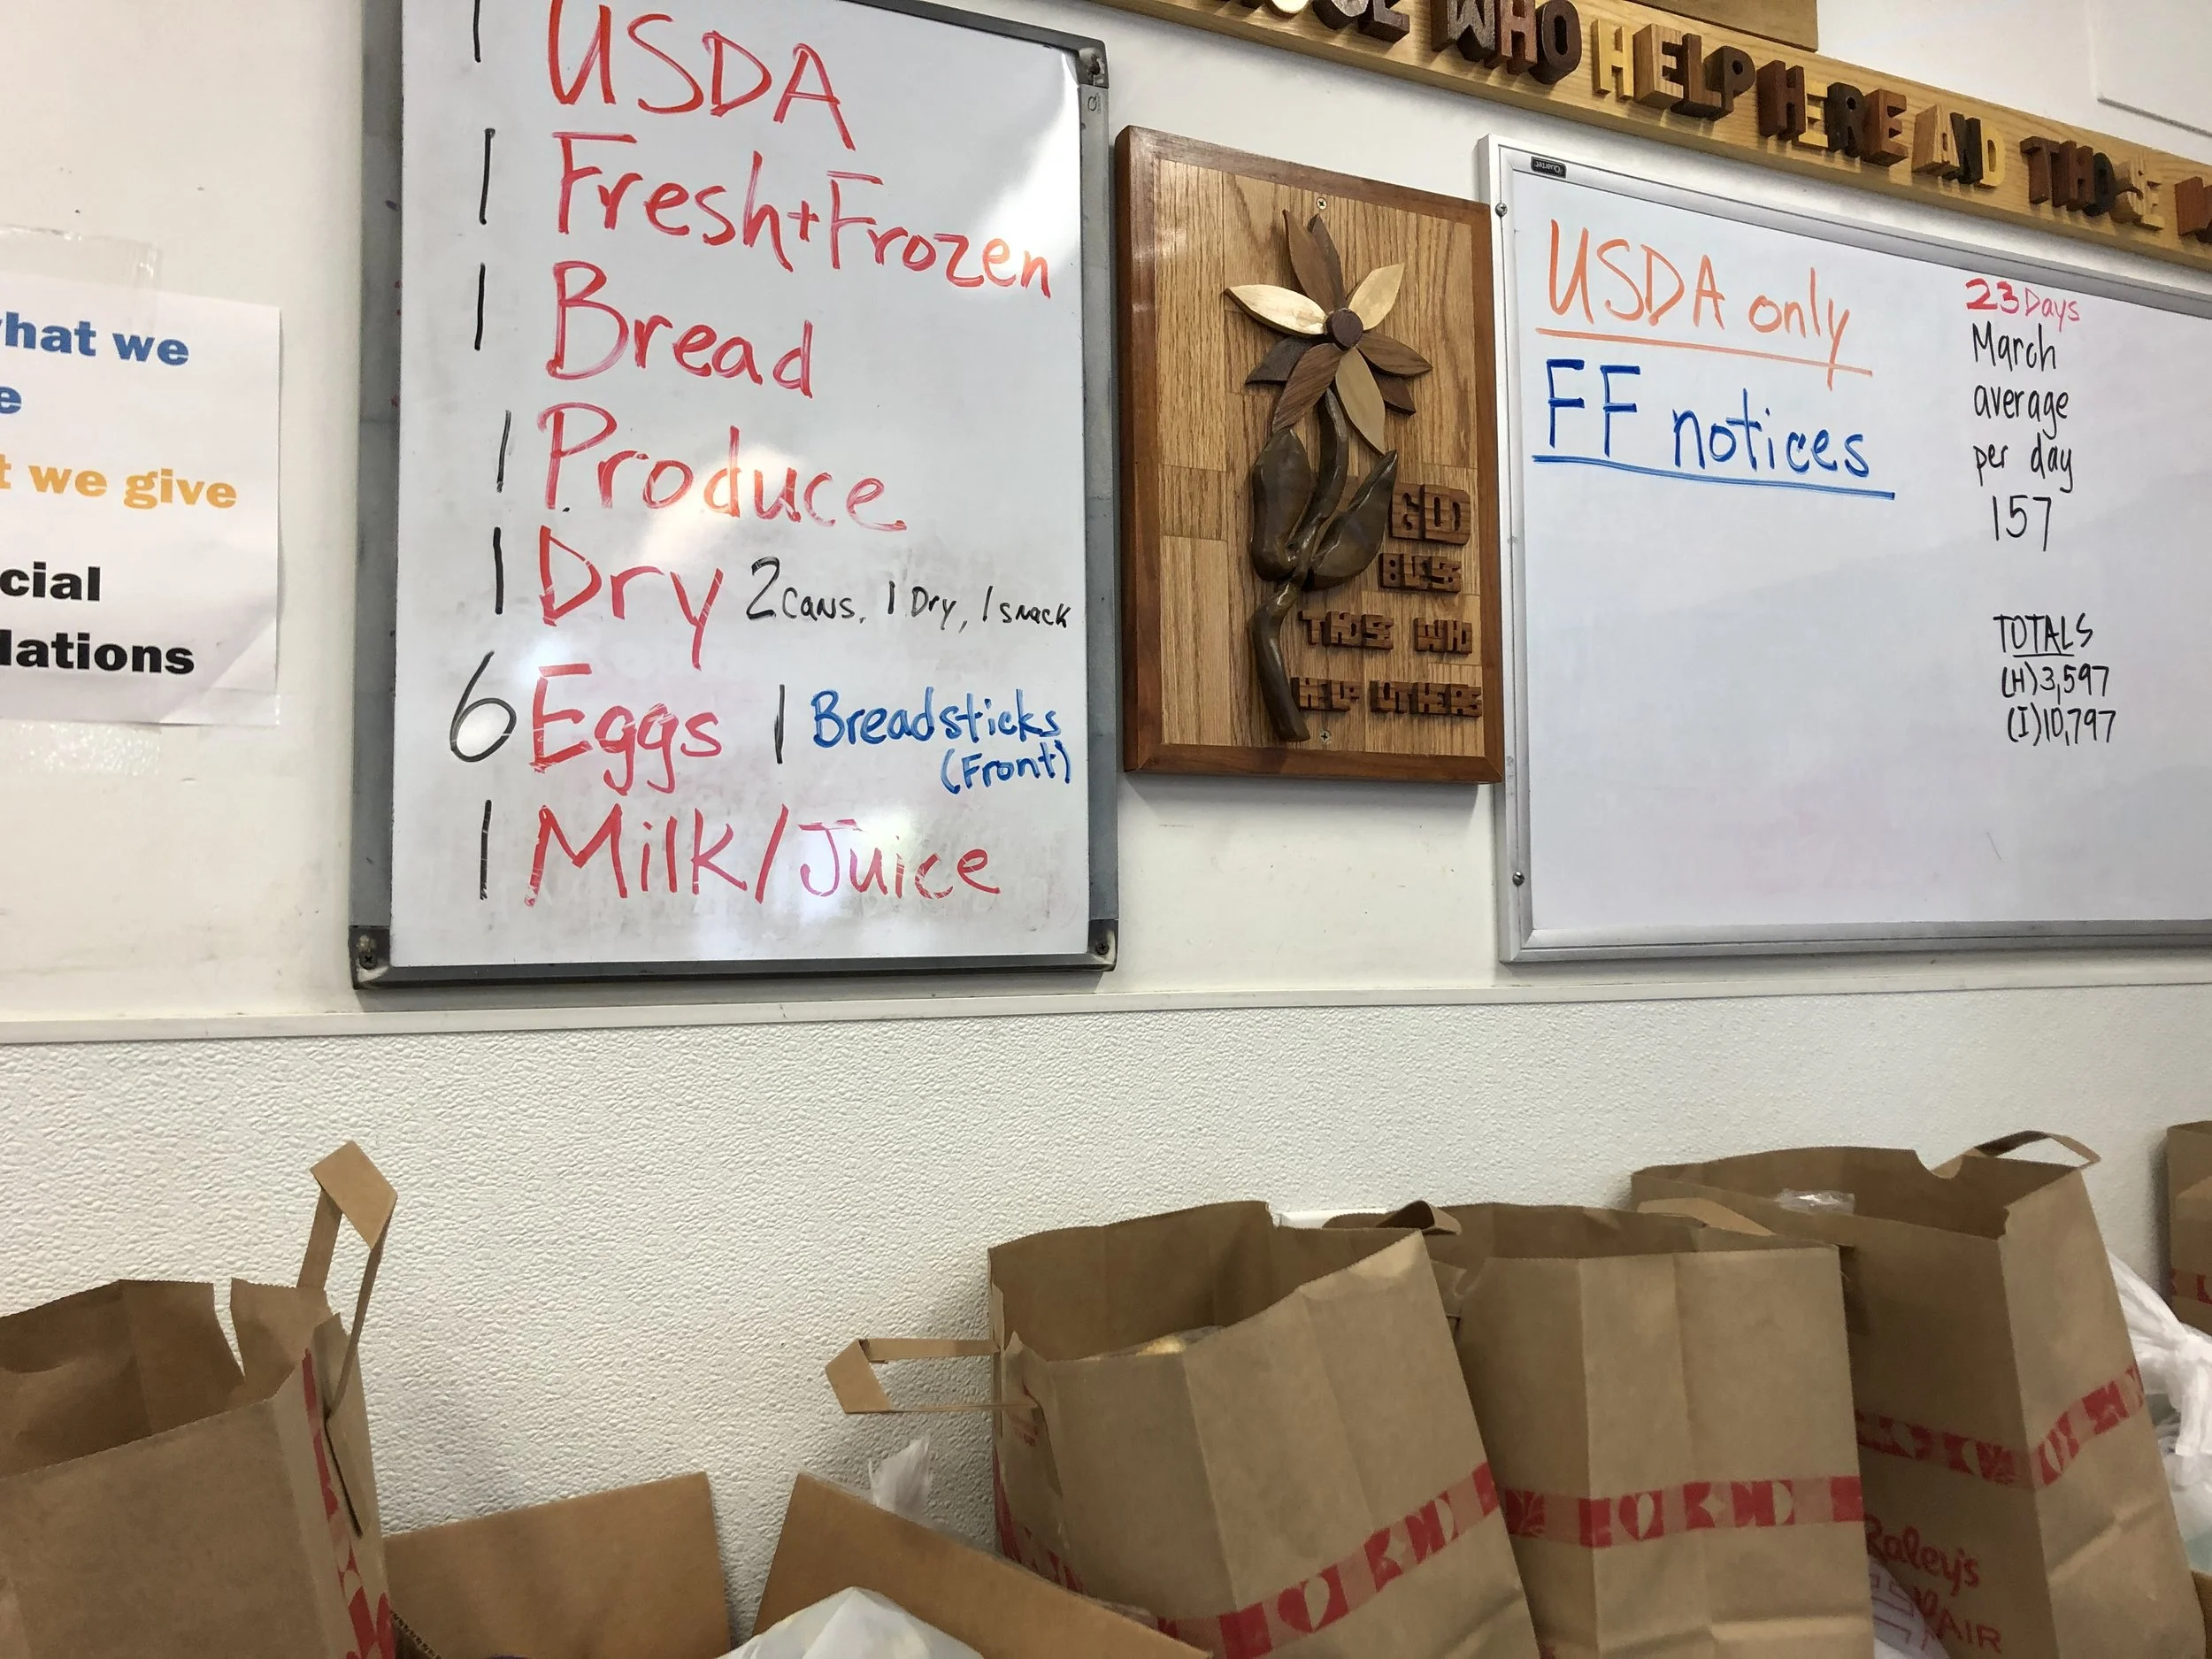 hat we
e
t we give
cial
dations
1 USDA
1 Fresh+Frozen
1 Bread
1 Produce
1 Dry 2 cans, 1 Dry, 1 snack
6 Eggs 1 Breadsticks
(Front)
1 Milk/Juice
GOD
BLESS
THOSE WHO
HELP OTHERS
WHO HELP HERE AND THOSE
Quartet
USDA only
FF notices
23 Days
March
average
per day
157
TOTALS
(H) 3,597
(I) 10,797
Raley's
AIR